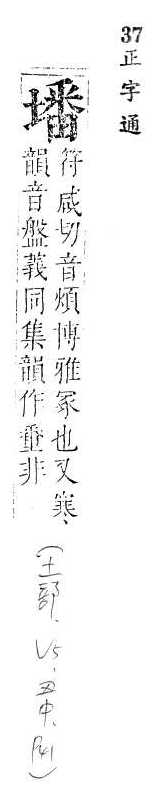 37 正字通
墦
符咸切音煩博雅冢也又寒、
韻音盤義同集韻作𡍨非
(土部、V5、丑中、P41)